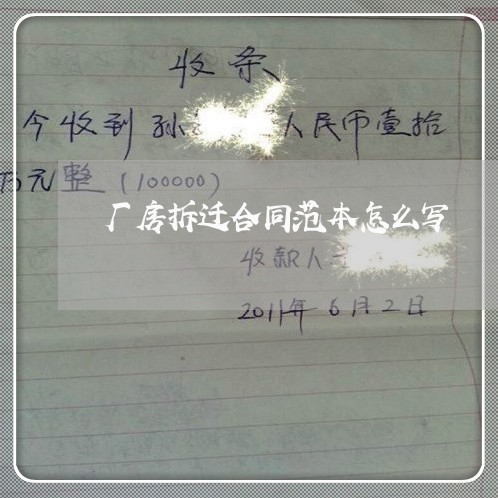 收条
今收到孙 人民币壹拾
万元整（100000）
厂房拆迁合同范本怎么写
收款人
2011年6月2日